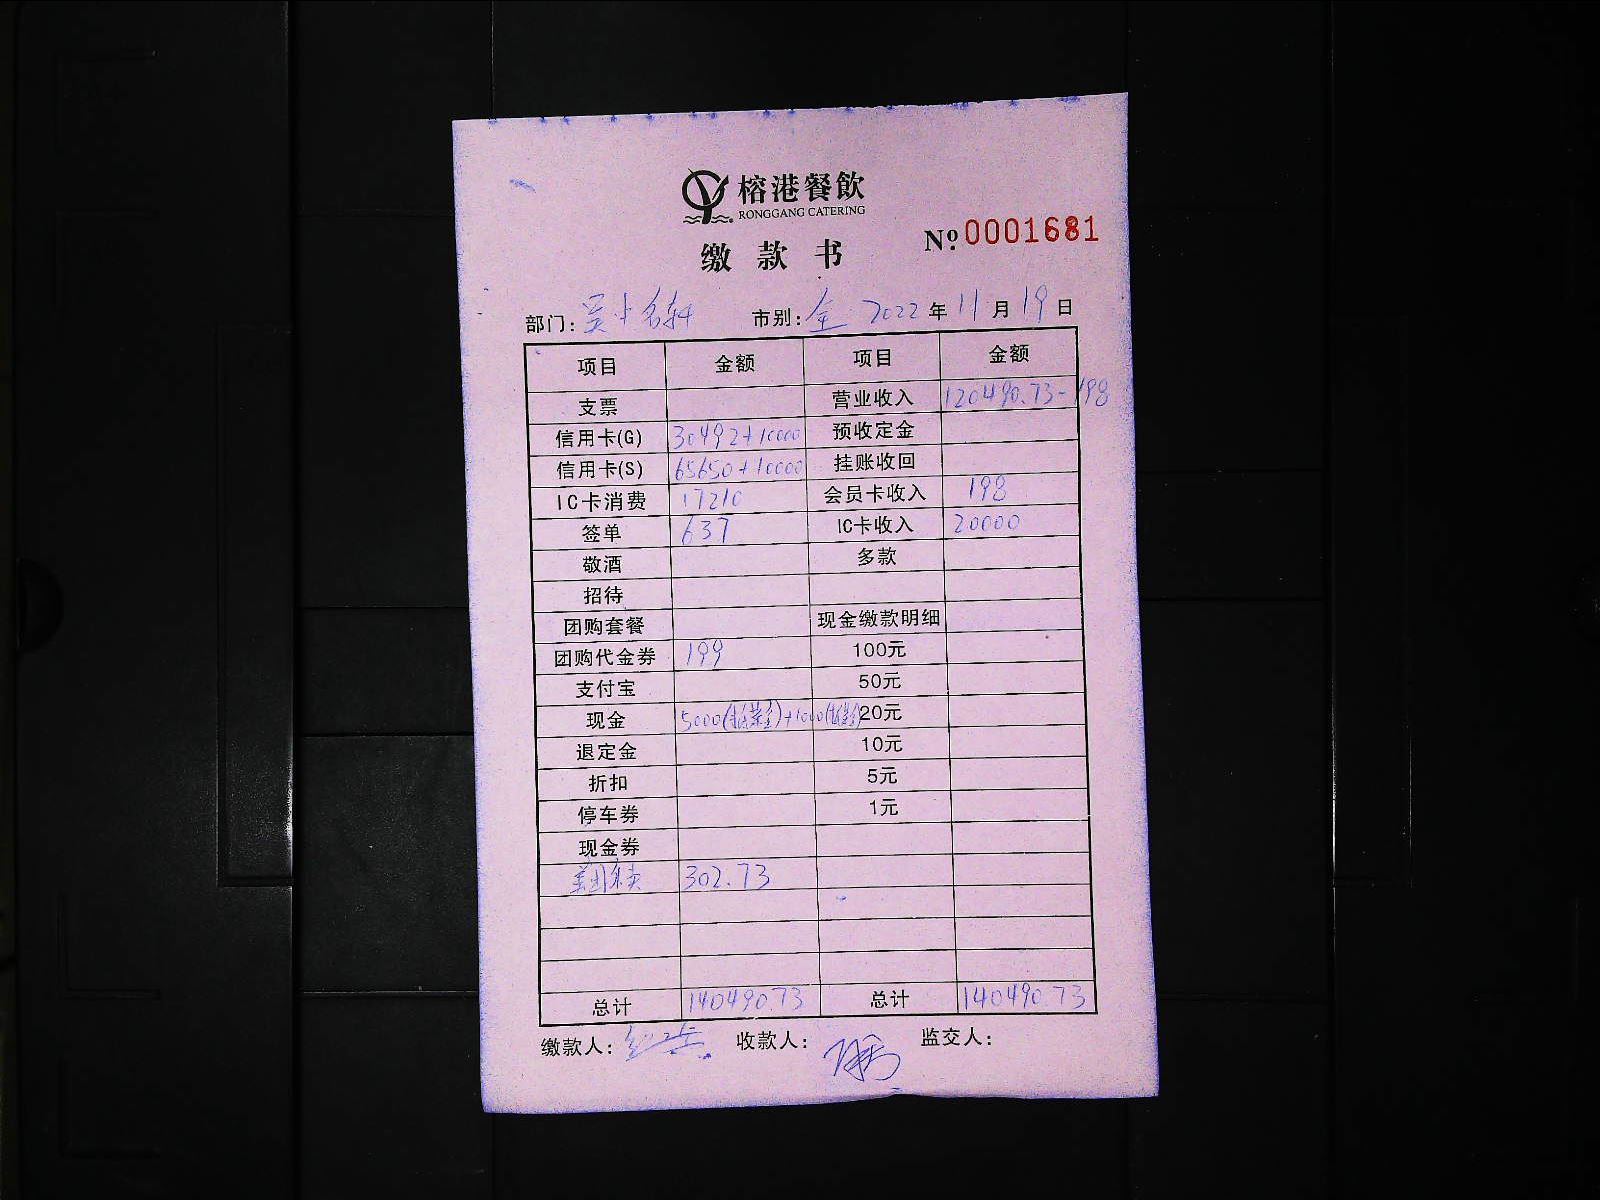 榕港餐飲
RONGGANG CATERING
缴款书
№ 0001681
部门: 吴小名轩 市别: 全 2022 年 11 月 19 日
项目 金额 项目 金额
支票 营业收入 120490.73-198
信用卡(G) 30492+10000 预收定金
信用卡(S) 65650+10000 挂账收回
IC卡消费 17210 会员卡收入 198
签单 637 IC卡收入 20000
敬酒 多款
招待
团购套餐 现金缴款明细
团购代金券 199 100元
支付宝 50元
现金 5000( )+1000( ) 20元
退定金 10元
折扣 5元
停车券 1元
现金券
美团外卖 302.73
总计 140490.73 总计 140490.73
缴款人: 收款人: 监交人: